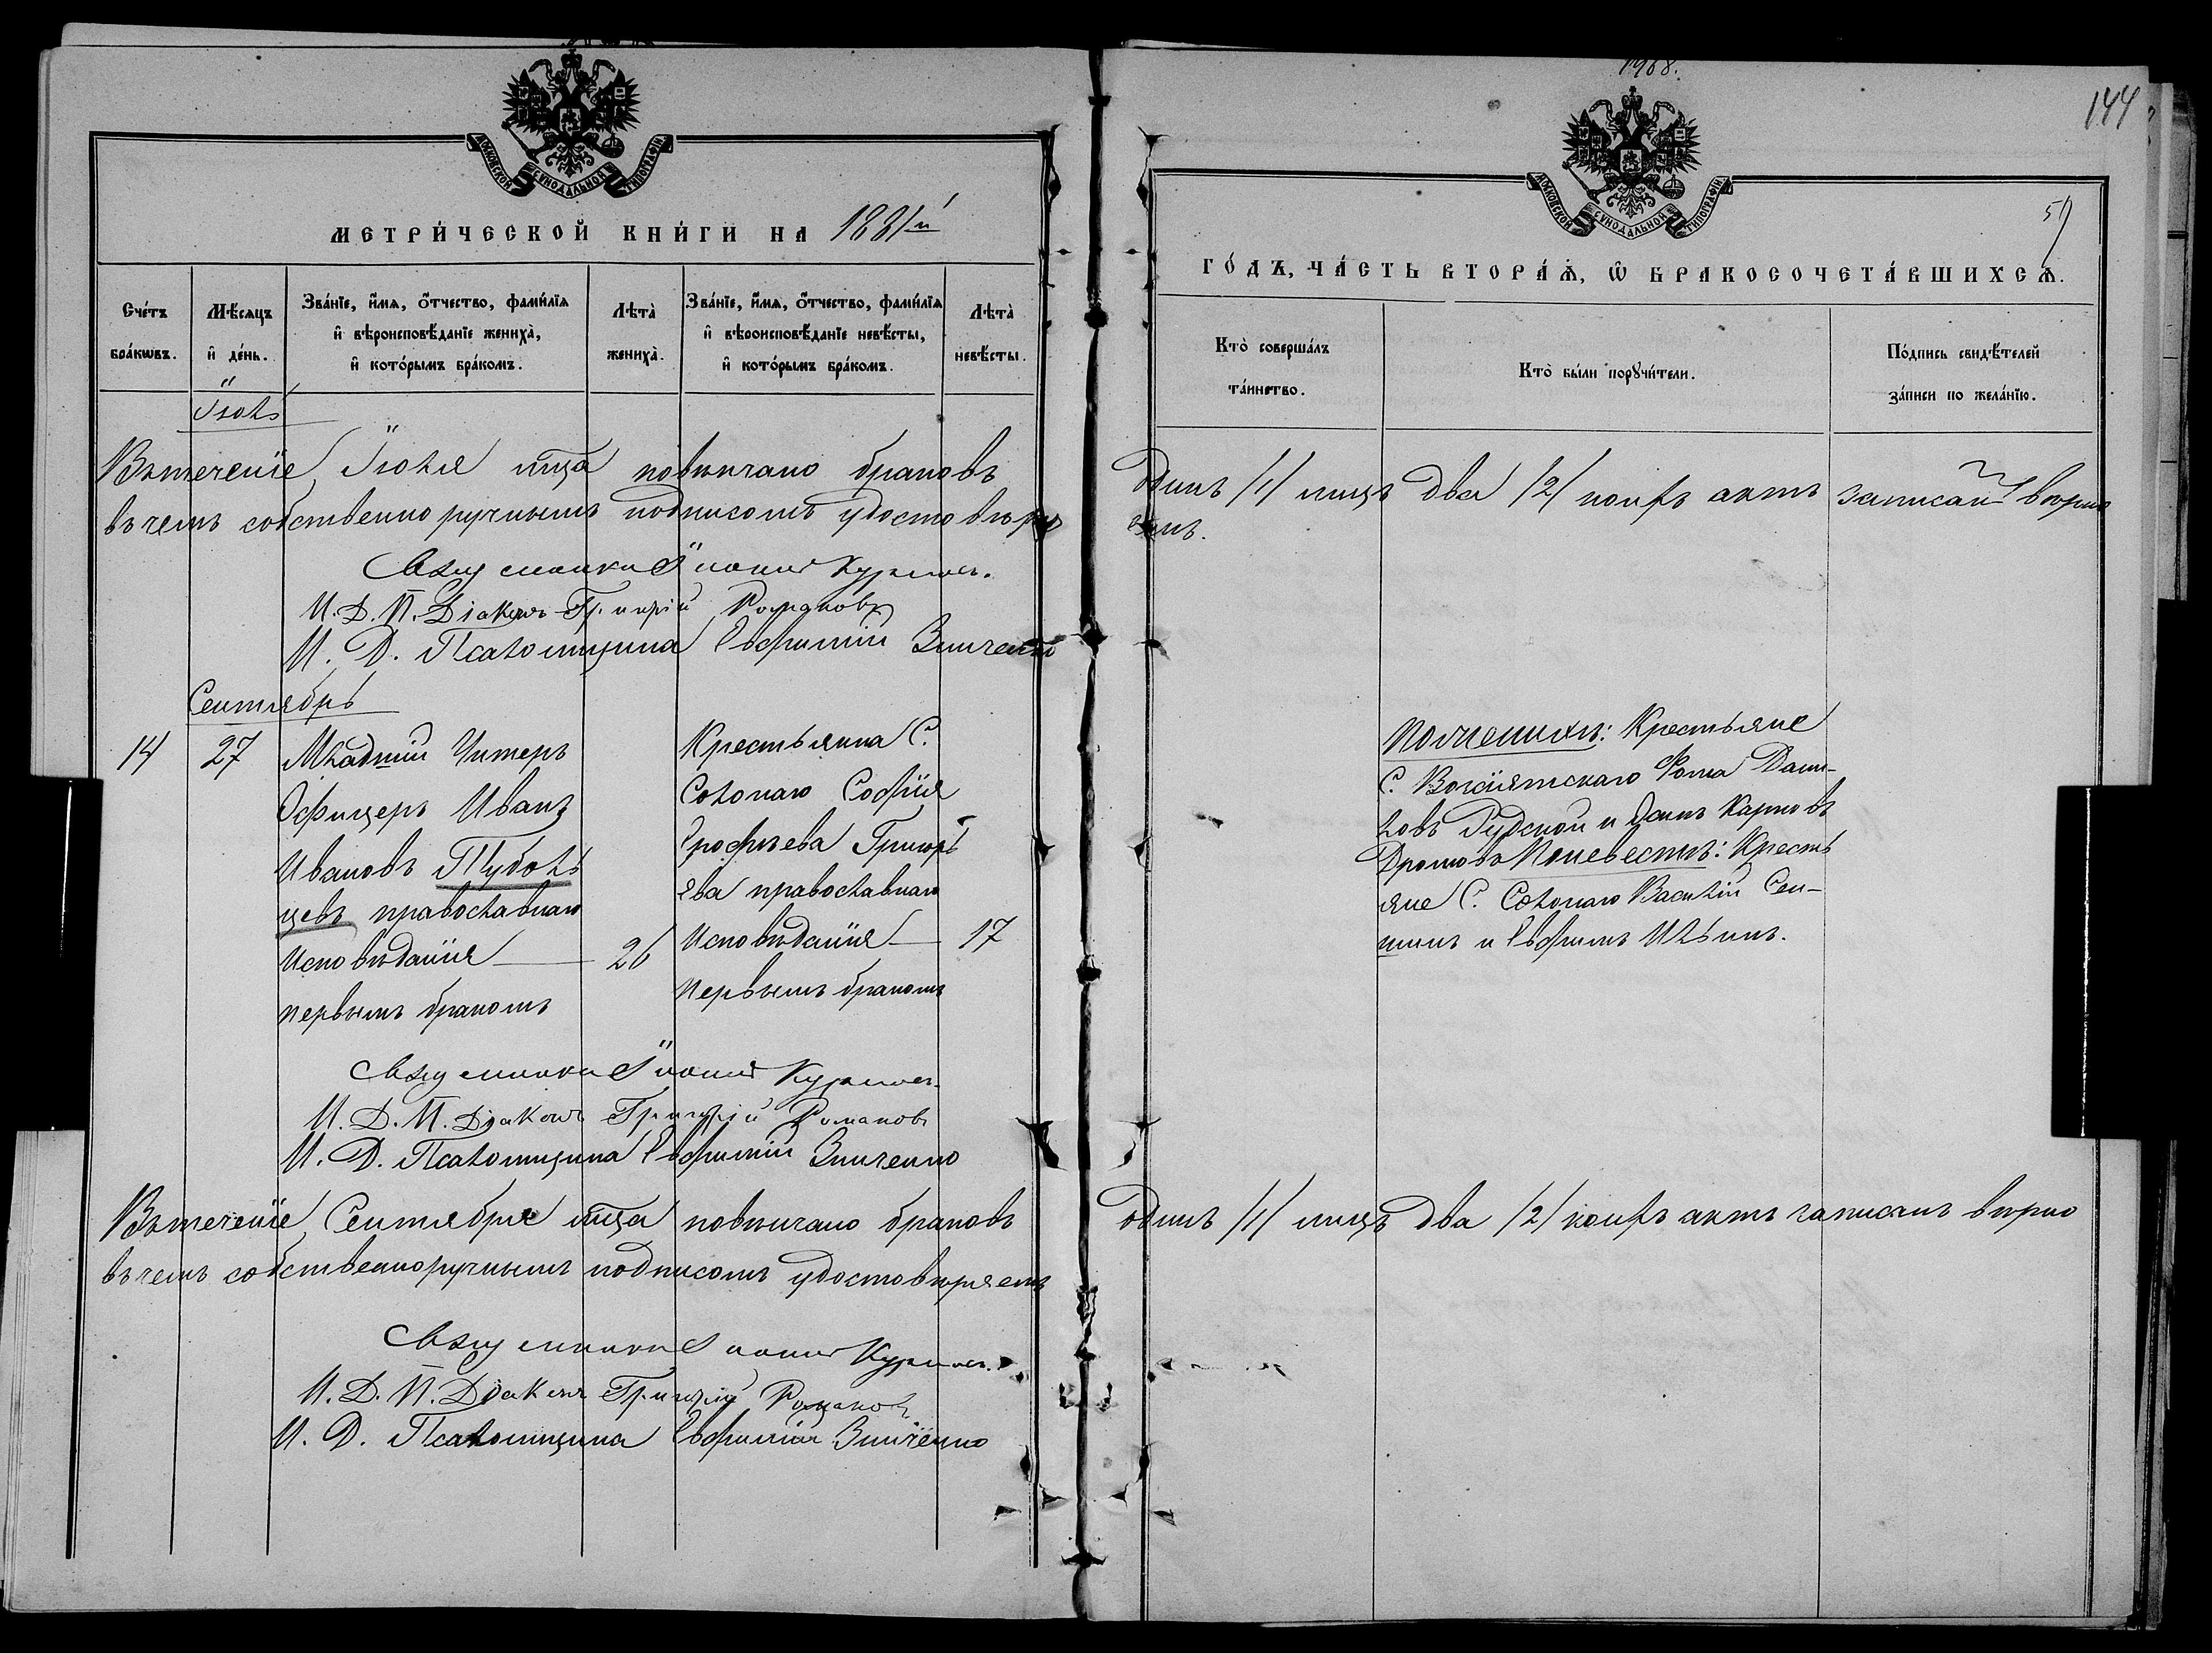 МОСКОВСКОЙ СУНОДАЛЬНОЙ ТИПОГРАФІИ
МЕТРИ́ЧЕСКОЙ КНИ́ГИ НА 1881й
Сче́тъ бра́кωвъ.
Мѣ́сяцъ и҆ де́нь.
Зва́нїе, и҆́мя, ѻ҆́тчество, фами́лїя
и҆ вѣроисповѣ́данїе жениха̀,
и҆ кото́рымъ бра́комъ.
Лѣта̀ жениха̀.
Зва́нїе, и҆́мя, ѻ҆́тчество, фами́лїя
и҆ вѣроисповѣ́данїе невѣ́сты,
и҆ кото́рымъ бра́комъ.
Лѣта̀ невѣ́сты.
Їюль
Въ теченіе Їюля мца повѣнчано браковъ
въ чемъ собственно ручнымъ подписомъ удостовѣря
И. Д. П. Діаконъ Григорій Романовъ
И. Д. Псаломщика Евфимій Зинченко
Сентябрь
14
27
Младшій Унтеръ
Офицеръ Иванъ
Ивановъ Пуболь
цевъ православнаго
Исповѣданія — 26
первымъ бракомъ
Крестьянка С.
Солонаго Софія
Ерофѣева Григорь
ева православнаго
Исповѣданія — 17
Первымъ бракомъ
И. Д. П. Діаконъ Григорій Романовъ
И. Д. Псаломщика Евфимій Зинченко
Въ теченіе Сентября мца повѣнчано браковъ
въ чемъ собственноручнымъ подписомъ удостовѣряемъ
И. Д. П. Діаконъ Григорій Романовъ
И. Д. Псаломщика Евфимій Зинченко
1968.
144
МОСКОВСКОЙ СУНОДАЛЬНОЙ ТИПОГРАФІИ
ГО́ДЪ, ЧА́СТЬ ВТОРА́Я, Ѽ БРАКОСОЧЕТА́ВШИХСЯ.
Кто̀ соверша́лъ
та́инство.
Кто̀ бы́ли порꙋчи́тели.
По́дпись свидѣ́телей
за́писи по жела́нїю.
Одинъ /1/ лицъ два /2/ коихъ актъ записанъ вѣрно
емъ.
По женихѣ: Крестьяне
Фома Дани-
ловъ Рудской и Осипъ Карповъ
По невѣстѣ: Кресть
яне С. Солонаго Василій Сен-
и Евфимъ Ильинъ.
одинъ /1/ лицъ два /2/ коихъ актъ записанъ вѣрно